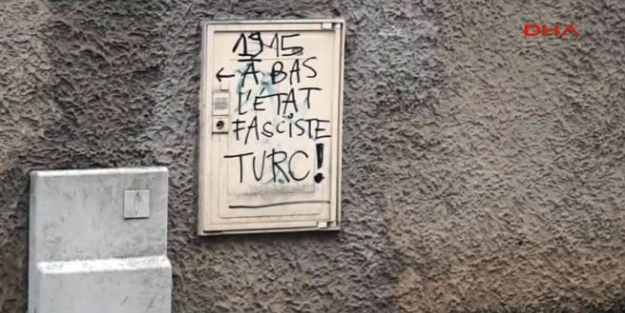 DHA
1915
← À BAS
L'ÉTAT
FASCISTE
TURC!